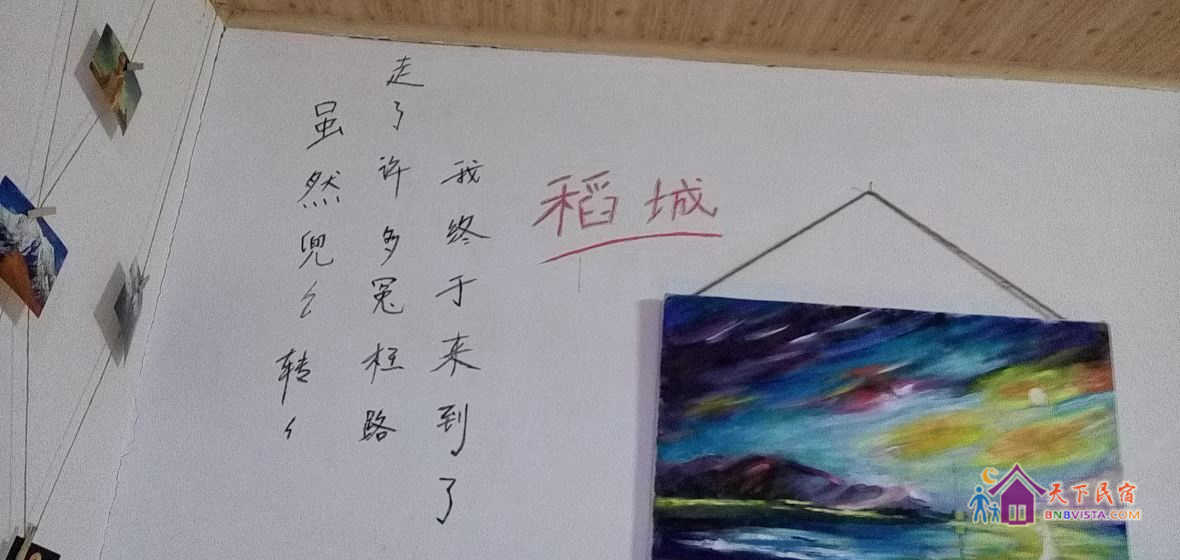 虽然兜々转々
走了许多冤枉路
我终于来到了
稻城
天下民宿
BNBVISTA.COM